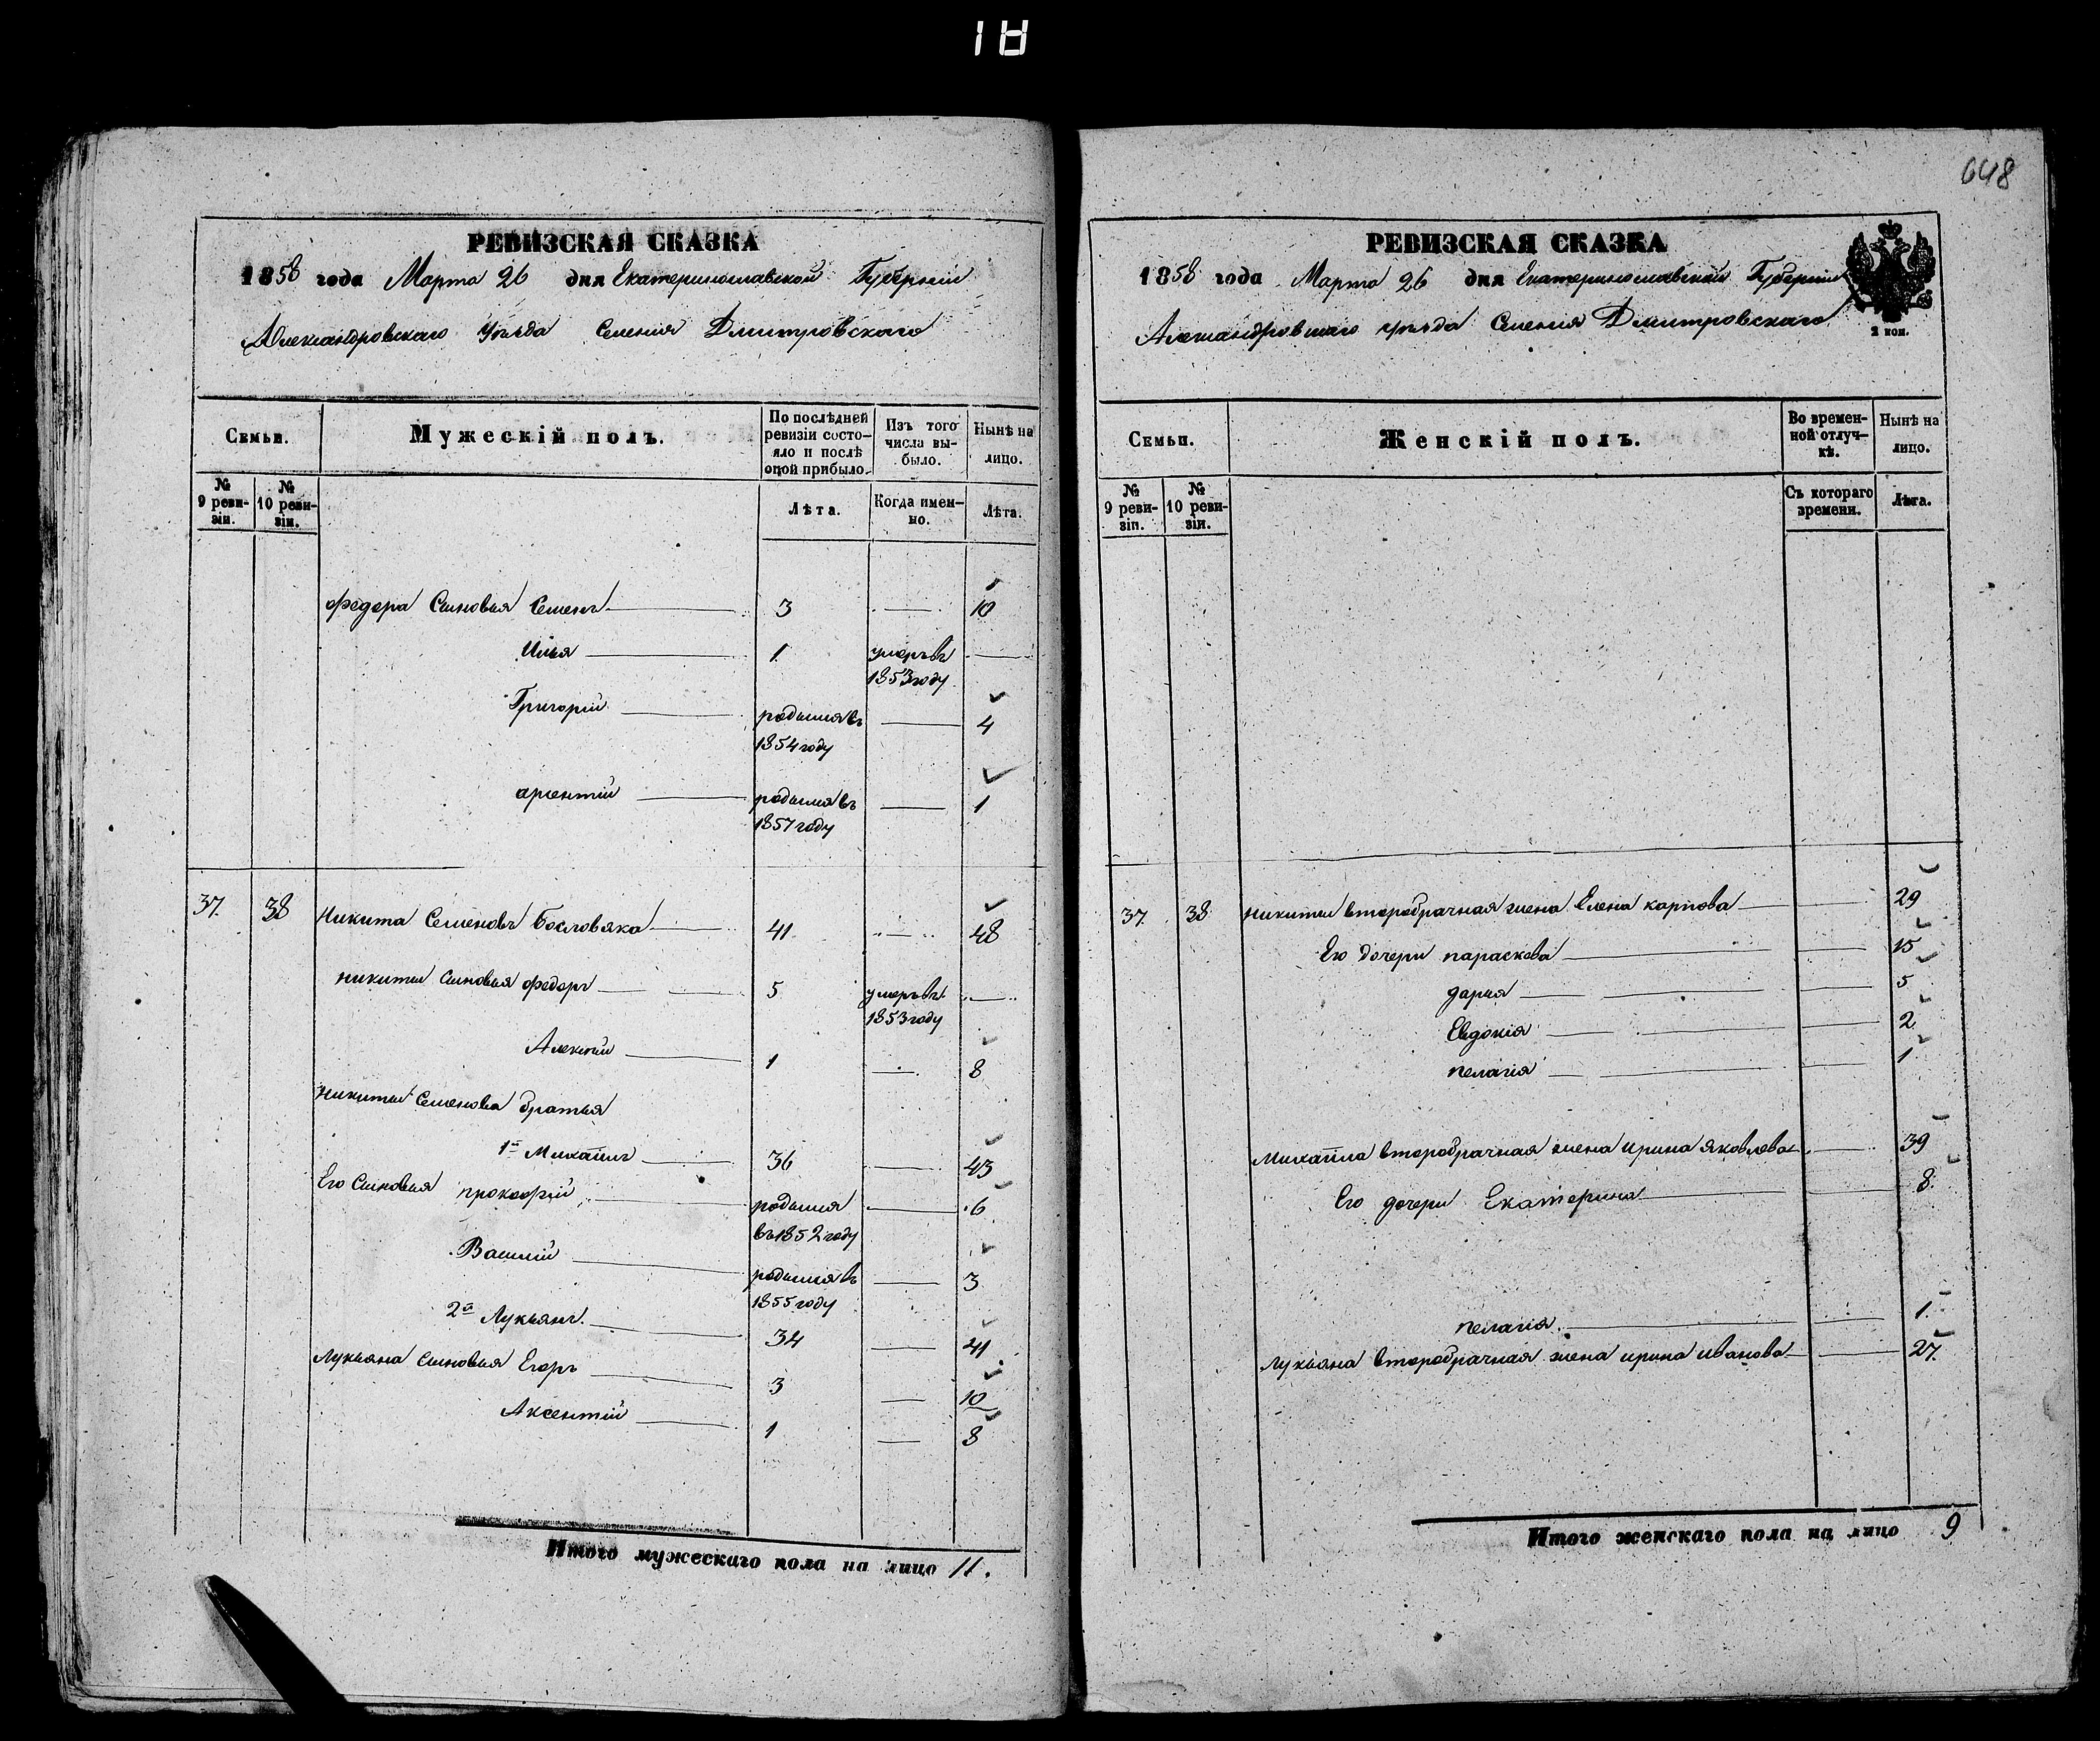 18
РЕВИЗСКАЯ СКАЗКА
1858 года Марта 26 дня Екатеринославской Губерніи
Александровскаго Уѣзда Селенія Дмитровскаго
Семьи.
Мужескій полъ.
По послѣдней ревизіи состояло и послѣ оной прибыло.
Изъ того числа выбыло.
Нынѣ на лицо.
№ 9 ревизіи.
№ 10 ревизіи.
Лѣта.
Когда именно.
Лѣта.
федора Сыновья Семенъ 3 10
Илья 1 умеръ въ 1853 году
Григорій родился въ 1854 году 4
арсентій родился въ 1857 году 1
37. 38 Никита Семеновъ 41 48
Никиты сыновья федоръ 5 умеръ въ 1853 году
Алексѣй 1 8
Никиты Семенова братья
1й Михаилъ 36 43
Его Сыновья прокофій родился въ 1852 году 6
Василій родился въ 1855 году 3
2й Лукьянъ 34 41
Лукьяна сыновья Егоръ 3 10
Аксентій 1 8
Итого мужескаго пола на лицо 11.
648
РЕВИЗСКАЯ СКАЗКА
1858 года Марта 26 дня Екатеринославской Губерніи
Александровскаго уѣзда Селенія Дмитровскаго
2 коп.
Семьи.
Женскій полъ.
Во временной отлучкѣ.
Нынѣ на лицо.
№ 9 ревизіи.
№ 10 ревизіи.
Съ котораго времени.
Лѣта.
37. 38 Никиты второбрачная жена Елена карпова 29
Его дочери параскева 15
дарья 5
Евдокія 2
пелагія 1
Михаила второбрачная жена ирина яковлева 39
Его дочери Екатерина 8
пелагія 1
Лукьяна второбрачная жена ирина иванова 27
Итого женскаго пола на лицо 9